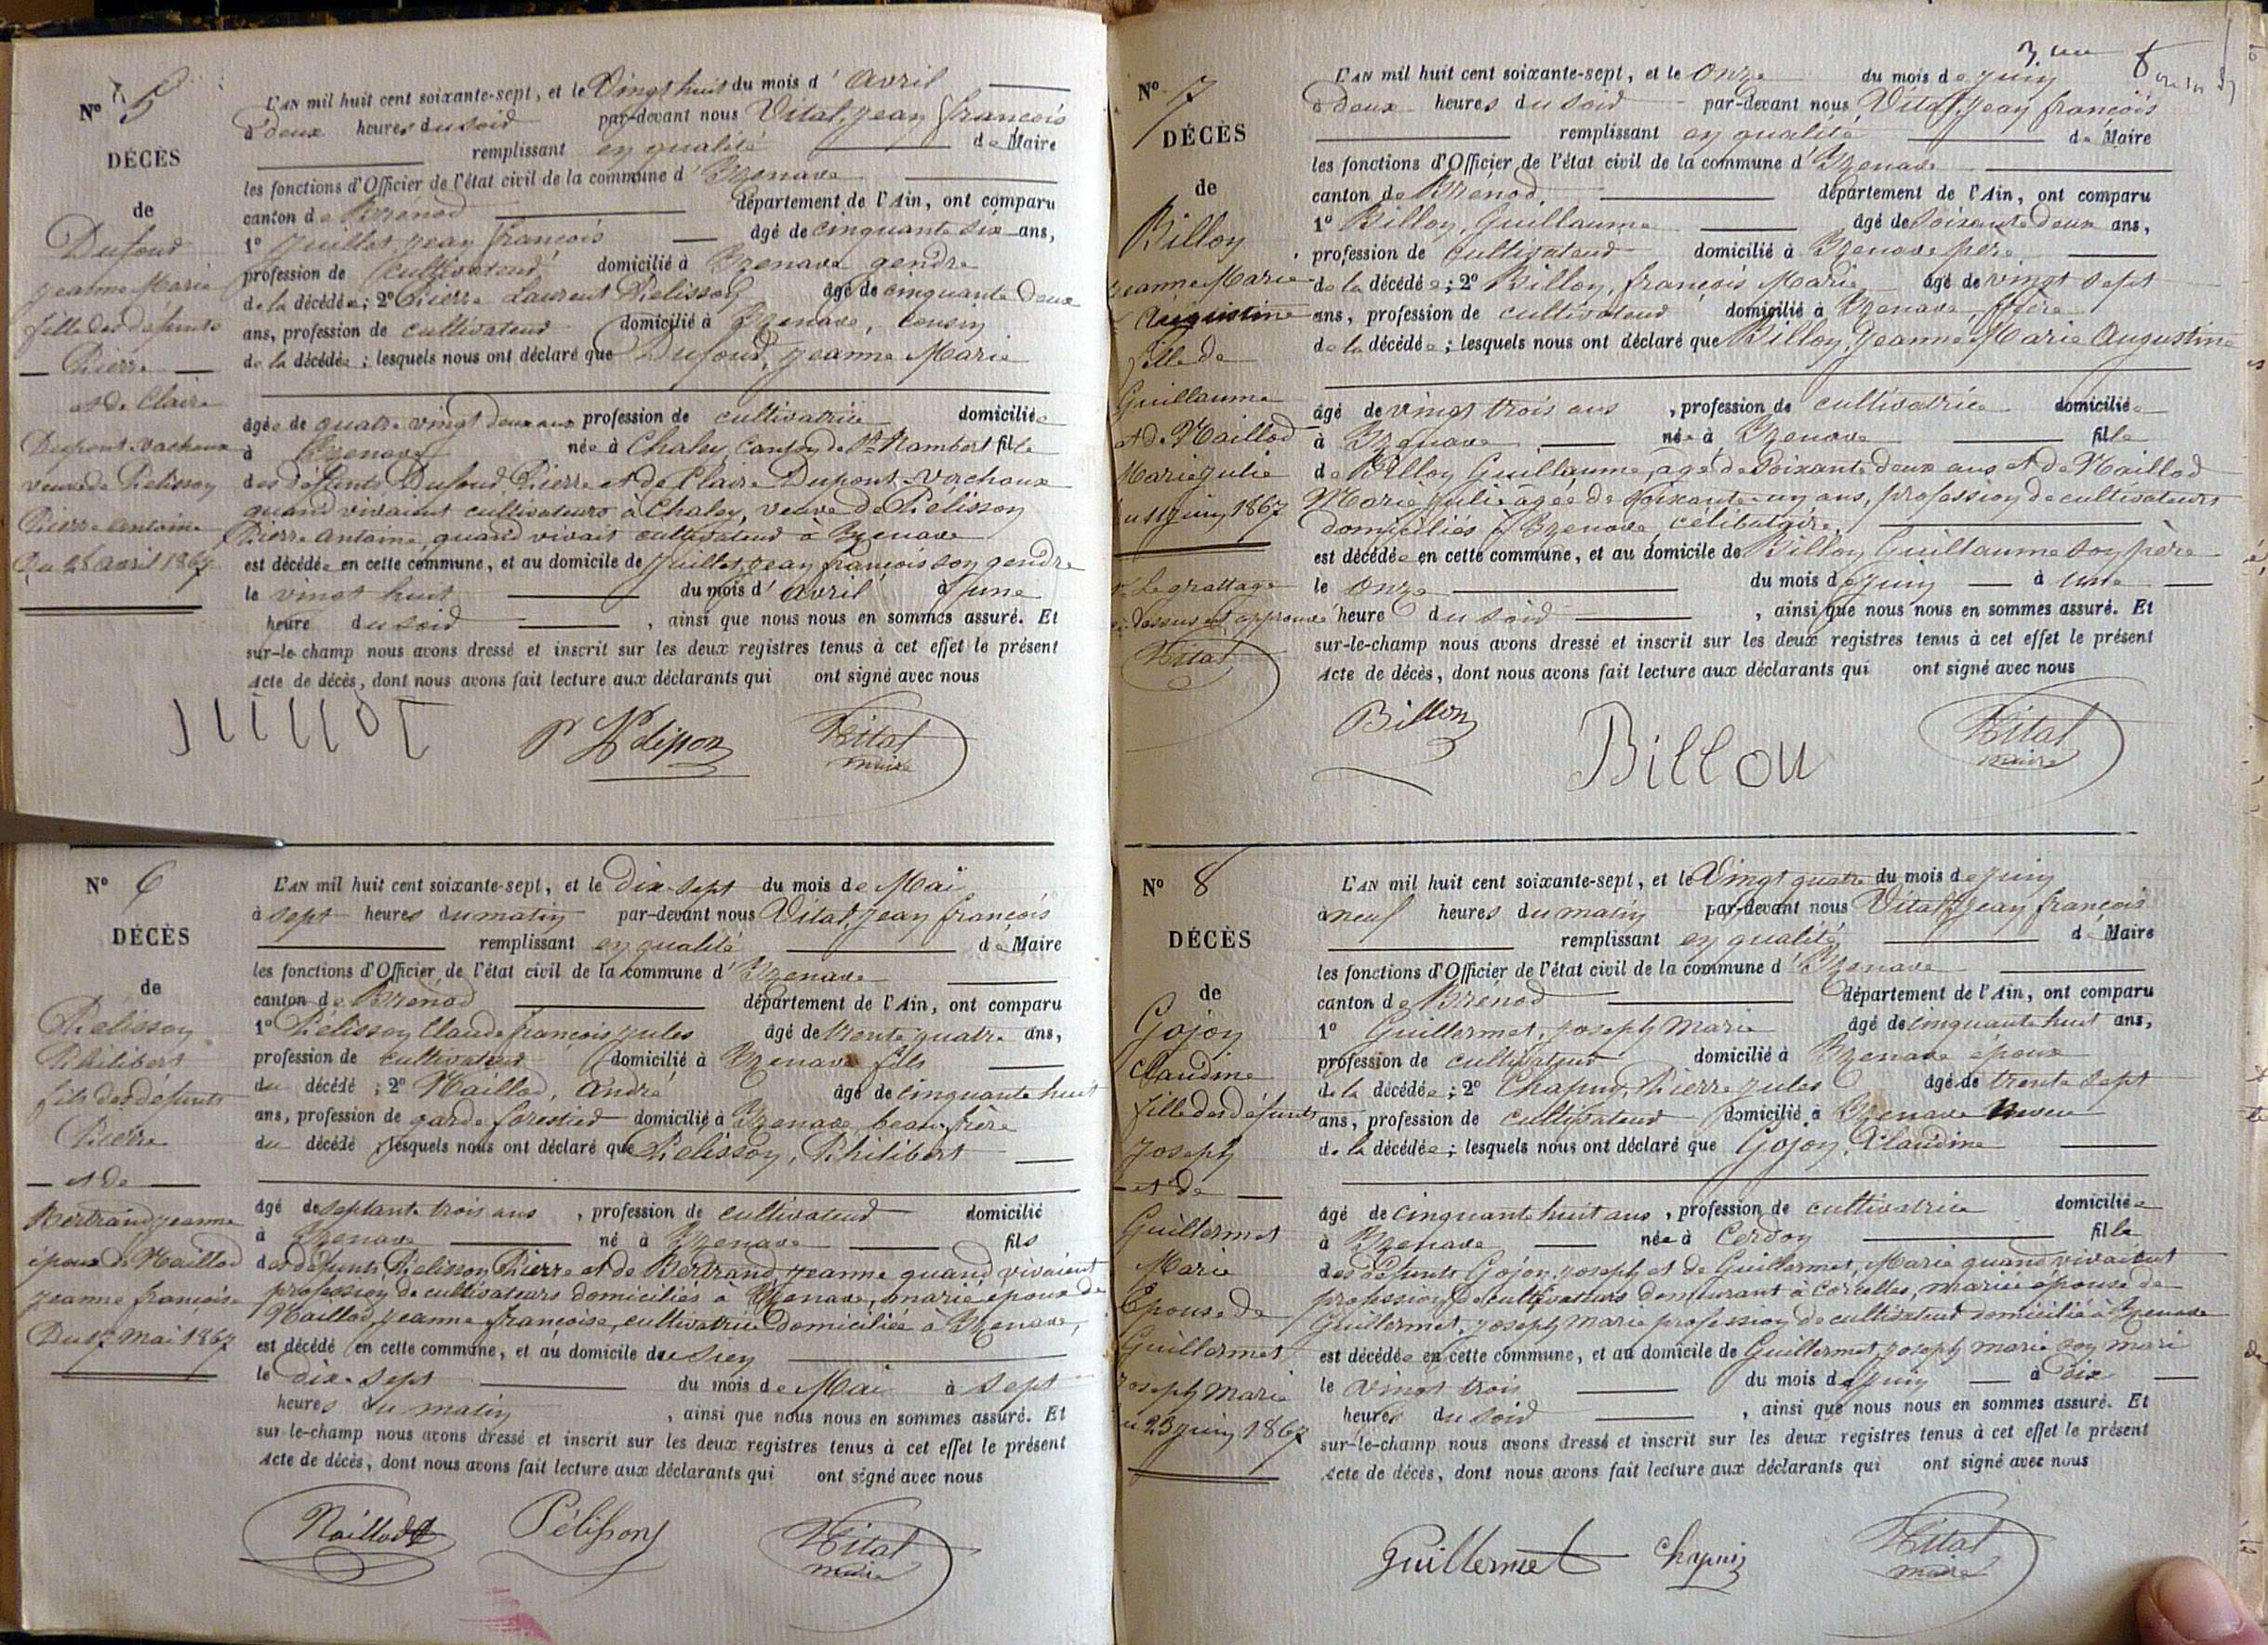 N° 5
DÉCÈS
de
Dufour
Jeanne Marie
fille des défunts
Pierre
et de Claire
Dupont-Vachoux
veuve de Pelisson
Pierre Antoine
Du 28 avril 1867
L'AN mil huit cent soixante-sept, et le Vingt huit du mois d' avril
à deux heures du soir par-devant nous Vital, Jean françois
remplissant en qualité de Maire
les fonctions d'Officier de l'état civil de la commune d' Izenave
canton de Brénod département de l'Ain, ont comparu
1° Juillet Jean françois âgé de cinquante six ans,
profession de cultivateur domicilié à Izenave gendre
de la décédée; 2° Pierre Laurent Pelisson âgé de cinquante deux
ans, profession de cultivateur domicilié à Izenave, cousin
de la décédée; lesquels nous ont déclaré que Dufour, Jeanne Marie
âgée de quatre vingt deux ans profession de cultivatrice domiciliée
à Izenave née à Chaley, Canton de St Rambert fille
des défunts Dufour Pierre et de Claire Dupont-Vachoux
quand vivaient cultivateurs à Chaley, veuve de Pélisson
Pierre Antoine, quand vivait cultivateur à Izenave
est décédée en cette commune, et au domicile de Juillet Jean françois son gendre
le vingt huit du mois d' avril à une
heure du soir, ainsi que nous nous en sommes assuré. Et
sur-le-champ nous avons dressé et inscrit sur les deux registres tenus à cet effet le présent
Acte de décès, dont nous avons fait lecture aux déclarants qui ont signé avec nous
JUILLOT P Pelisson Vital
maire
N° 6
DÉCÈS
de
Pelisson
Philibert
fils des défunts
Pierre
et de
Bertrand Jeanne
époux de Maillod
Jeanne françoise
Du 17 Mai 1867
L'AN mil huit cent soixante-sept, et le Dix-sept du mois de Mai
à sept heures du matin par-devant nous Vital, Jean françois
remplissant en qualité de Maire
les fonctions d'Officier de l'état civil de la commune d' Izenave
canton de Brénod département de l'Ain, ont comparu
1° Pélisson Claude françois Jules âgé de trente quatre ans,
profession de cultivateur domicilié à Izenave fils
du décédé; 2° Maillod, André âgé de cinquante huit
ans, profession de garde forestier domicilié à Izenave, beau-frère
du décédé, lesquels nous ont déclaré que Pelisson, Philibert
âgé de septante trois ans, profession de cultivateur domicilié
à Izenave né à Izenave fils
des défunts Pelisson Pierre et de Bertrand Jeanne quand vivaient
profession de cultivateurs domiciliés à Izenave, marié époux de
Maillod Jeanne françoise, cultivatrice domiciliée à Izenave,
est décédé en cette commune, et au domicile du sien
le dix-sept du mois de Mai à sept
heures du matin, ainsi que nous nous en sommes assuré. Et
sur-le-champ nous avons dressé et inscrit sur les deux registres tenus à cet effet le présent
Acte de décès, dont nous avons fait lecture aux déclarants qui ont signé avec nous
Maillod Pélisson Vital
maire
N° 7
DÉCÈS
de
Billoy
Jeanne Marie
Augustine
fille de
Guillaume
et de Maillod
Marie Julie
du 11 Juin 1867
Le grattage
ci dessus est approuvé
Vital
L'AN mil huit cent soixante-sept, et le Onze du mois de Juin
à deux heures du soir par-devant nous Vital, Jean françois
remplissant en qualité de Maire
les fonctions d'Officier de l'état civil de la commune d' Izenave
canton de Brénod département de l'Ain, ont comparu
1° Billoy, Guillaume âgé de soixante deux ans,
profession de cultivateur domicilié à Izenave père
de la décédée; 2° Billoy, françois Marie âgé de vingt sept
ans, profession de cultivateur domicilié à Izenave, frère
de la décédée; lesquels nous ont déclaré que Billoy, Jeanne Marie Augustine
âgé de vingt trois ans, profession de cultivatrice domiciliée
à Izenave née à Izenave fille
de Billoy Guillaume, âgé de soixante deux ans et de Maillod
Marie Julie âgée de soixante un ans, profession de cultivateurs
domiciliés à Izenave, célibataire,
est décédée en cette commune, et au domicile de Billoy Guillaume son père
le Onze du mois de Juin à une
heure du soir, ainsi que nous nous en sommes assuré. Et
sur-le-champ nous avons dressé et inscrit sur les deux registres tenus à cet effet le présent
Acte de décès, dont nous avons fait lecture aux déclarants qui ont signé avec nous
Billon Billou Vital
maire
N° 8
DÉCÈS
de
Gojon
Claudine
fille des défunts
Joseph
et de
Guillermet
Marie
Epouse de
Guillermet
Joseph Marie
du 23 Juin 1867
L'AN mil huit cent soixante-sept, et le Vingt quatre du mois de Juin
à neuf heures du matin par-devant nous Vital, Jean françois
remplissant en qualité de Maire
les fonctions d'Officier de l'état civil de la commune d' Izenave
canton de Brénod département de l'Ain, ont comparu
1° Guillermet, Joseph Marie âgé de cinquante huit ans,
profession de cultivateur domicilié à Izenave époux
de la décédée; 2° Chapuy, Pierre Jules âgé de trente sept
ans, profession de cultivateur domicilié à Izenave neveu
de la décédée; lesquels nous ont déclaré que Gojon, Claudine
âgé de cinquante huit ans, profession de cultivatrice domiciliée
à Izenave née à Cerdon fille
des défunts Gojon, Joseph et de Guillermet, Marie quand vivaient
profession de cultivateurs demeurant à Corcelles, mariée épouse de
Guillermet, Joseph Marie profession de cultivateur domicilié à Izenave
est décédée en cette commune, et au domicile de Guillermet Joseph marie son mari
le vingt trois du mois de Juin à dix
heures du soir, ainsi que nous nous en sommes assuré. Et
sur-le-champ nous avons dressé et inscrit sur les deux registres tenus à cet effet le présent
Acte de décès, dont nous avons fait lecture aux déclarants qui ont signé avec nous
Guillermet Chapuis Vital
maire